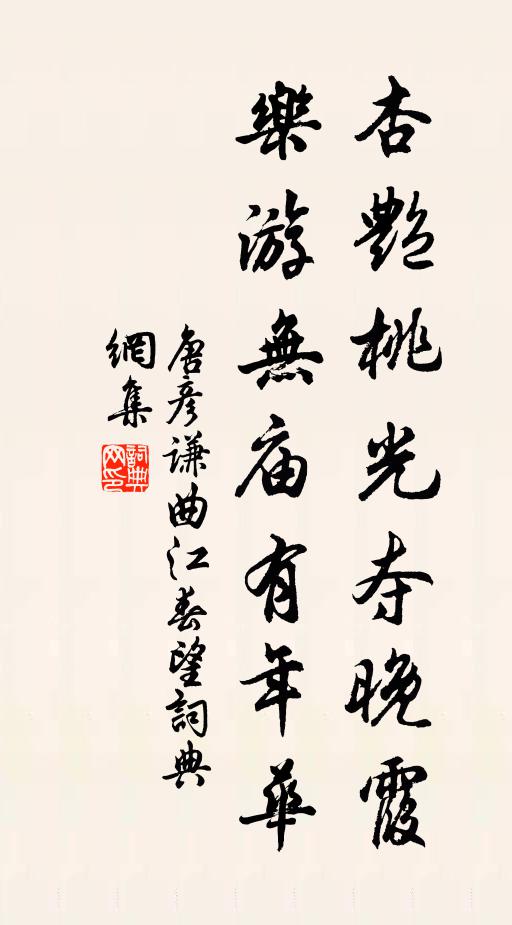 杏艷桃光夺晚霞
樂游無庙有年華
唐彦謙曲江春望詞典
網集
詞典网印